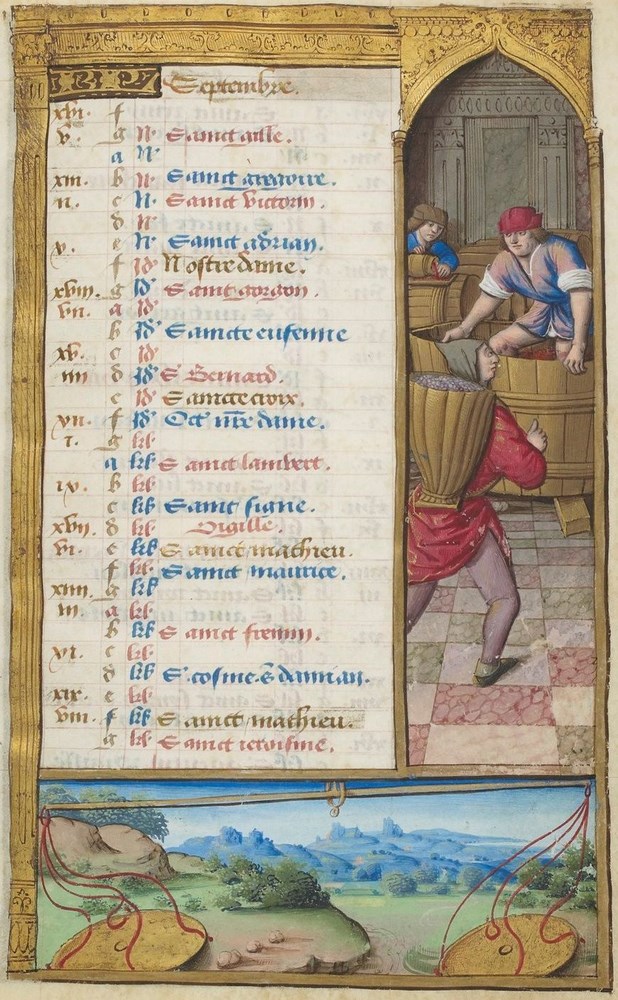 Septembre.
xvi. f
v. g N. Sanct gille.
a N.
xiii. b N. Sanct gregoire.
ii. c N. Sanct victorin.
d N.
x. e N. Sanct adrian.
f id Nostre dame.
xviii. g id Sanct gorgon.
vii. a id
b id Sancte eufenne
xv. c id
iiii d id S Bernard.
e id Sancte croix.
xii. f id Oct nre dame.
i. g kl
a kl Sanct lambert.
ix. b kl
c kl Sanct signe.
xvii. d kl Vigille.
vi. e kl Sanct mathieu.
f kl Sanct maurice.
xiiii. g kl
iii. a kl
b kl Sanct fremin.
xi. c kl
d kl S. cosme & damian.
xix. e kl
viii. f kl Sanct mathieu.
g kl Sanct ieroisme.